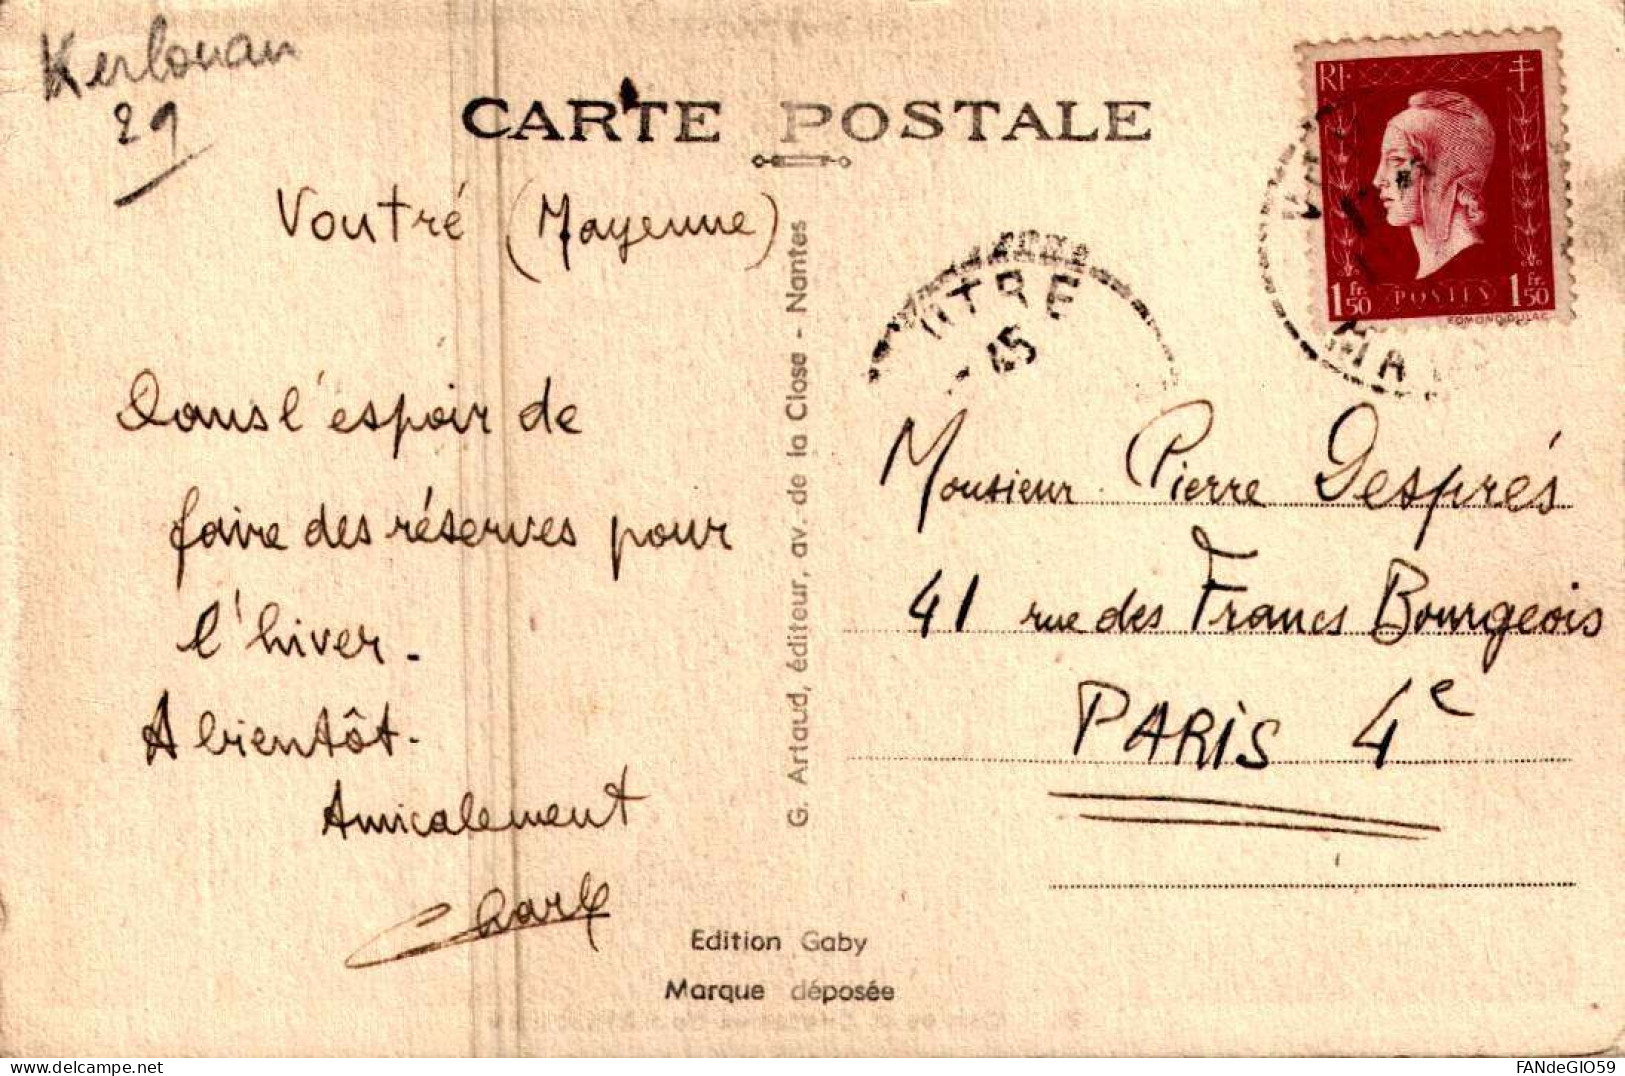 Kerlouan
29
CARTE POSTALE
RF
1 fr. 50 POSTES 1 fr. 50
EDMOND DULAC
MA
OTRE
45
Voutré (Mayenne)
Dans l'espoir de
faire des réserves pour
l'hiver.
A bientôt.
Amicalement
G. Artaud, éditeur, av. de la Close - Nantes
Monsieur Pierre Després
41 rue des Francs Bourgeois
PARIS 4e
Edition Gaby
Marque déposée
FANdeGIO59